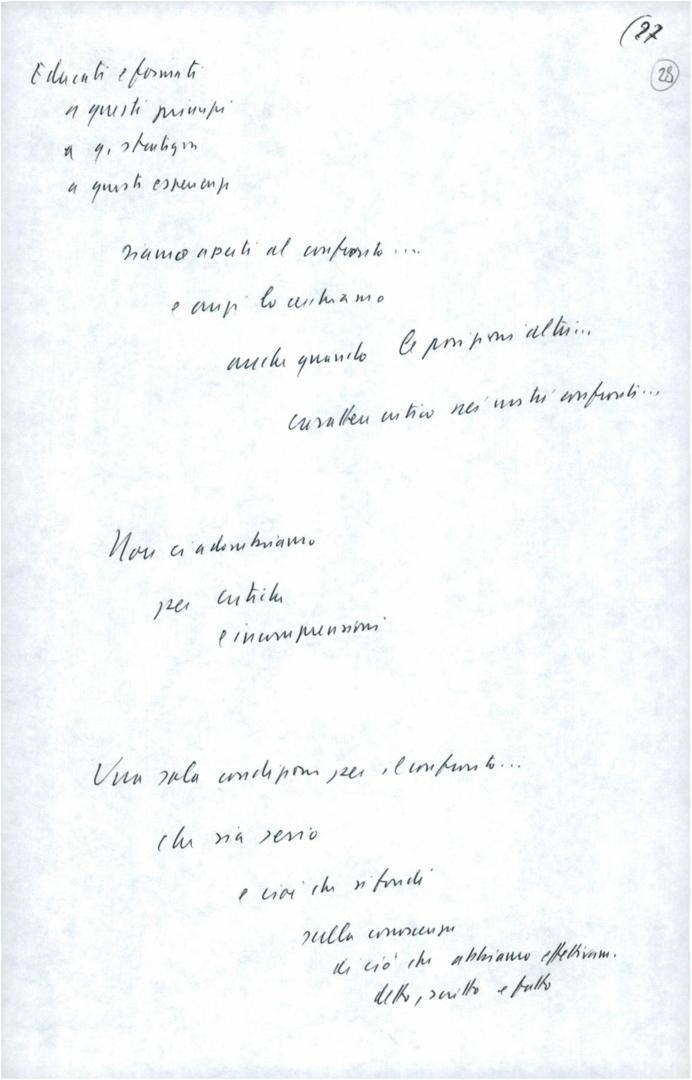 (27
28
Educati e formati
a questi principi
a q. strategia
a questa esperienza
siamo aperti al confronto...
e anzi lo cerchiamo
anche quando le posizioni altrui...
carattere critico nei nostri confronti...
Non ci adombriamo
per critiche
e incomprensioni
Una sola condizione per il confronto...
che sia serio
e cioè che si fondi
sulla conoscenza
di ciò che abbiamo effettivam.
detto, scritto e fatto